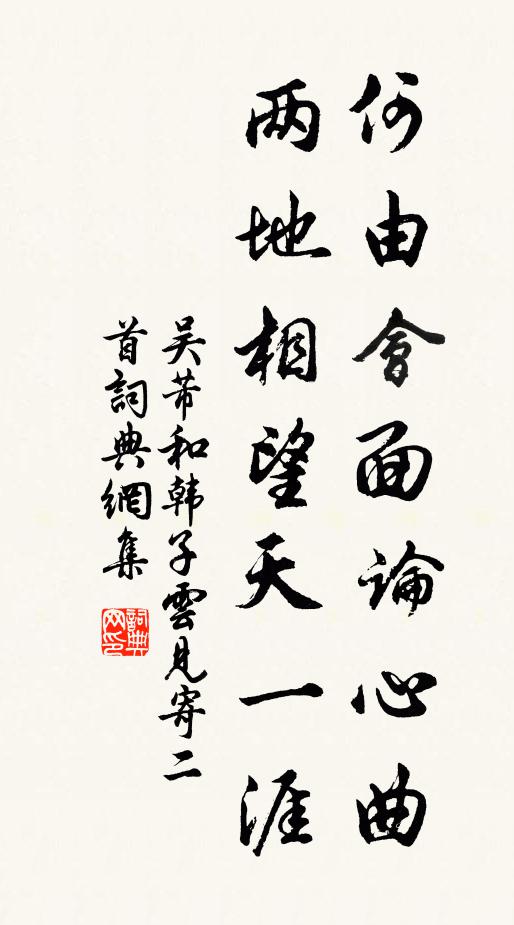 何由會面論心曲
两地相望天一涯
吴芾和韩子雲見寄二
首詞典網集
詞典网印